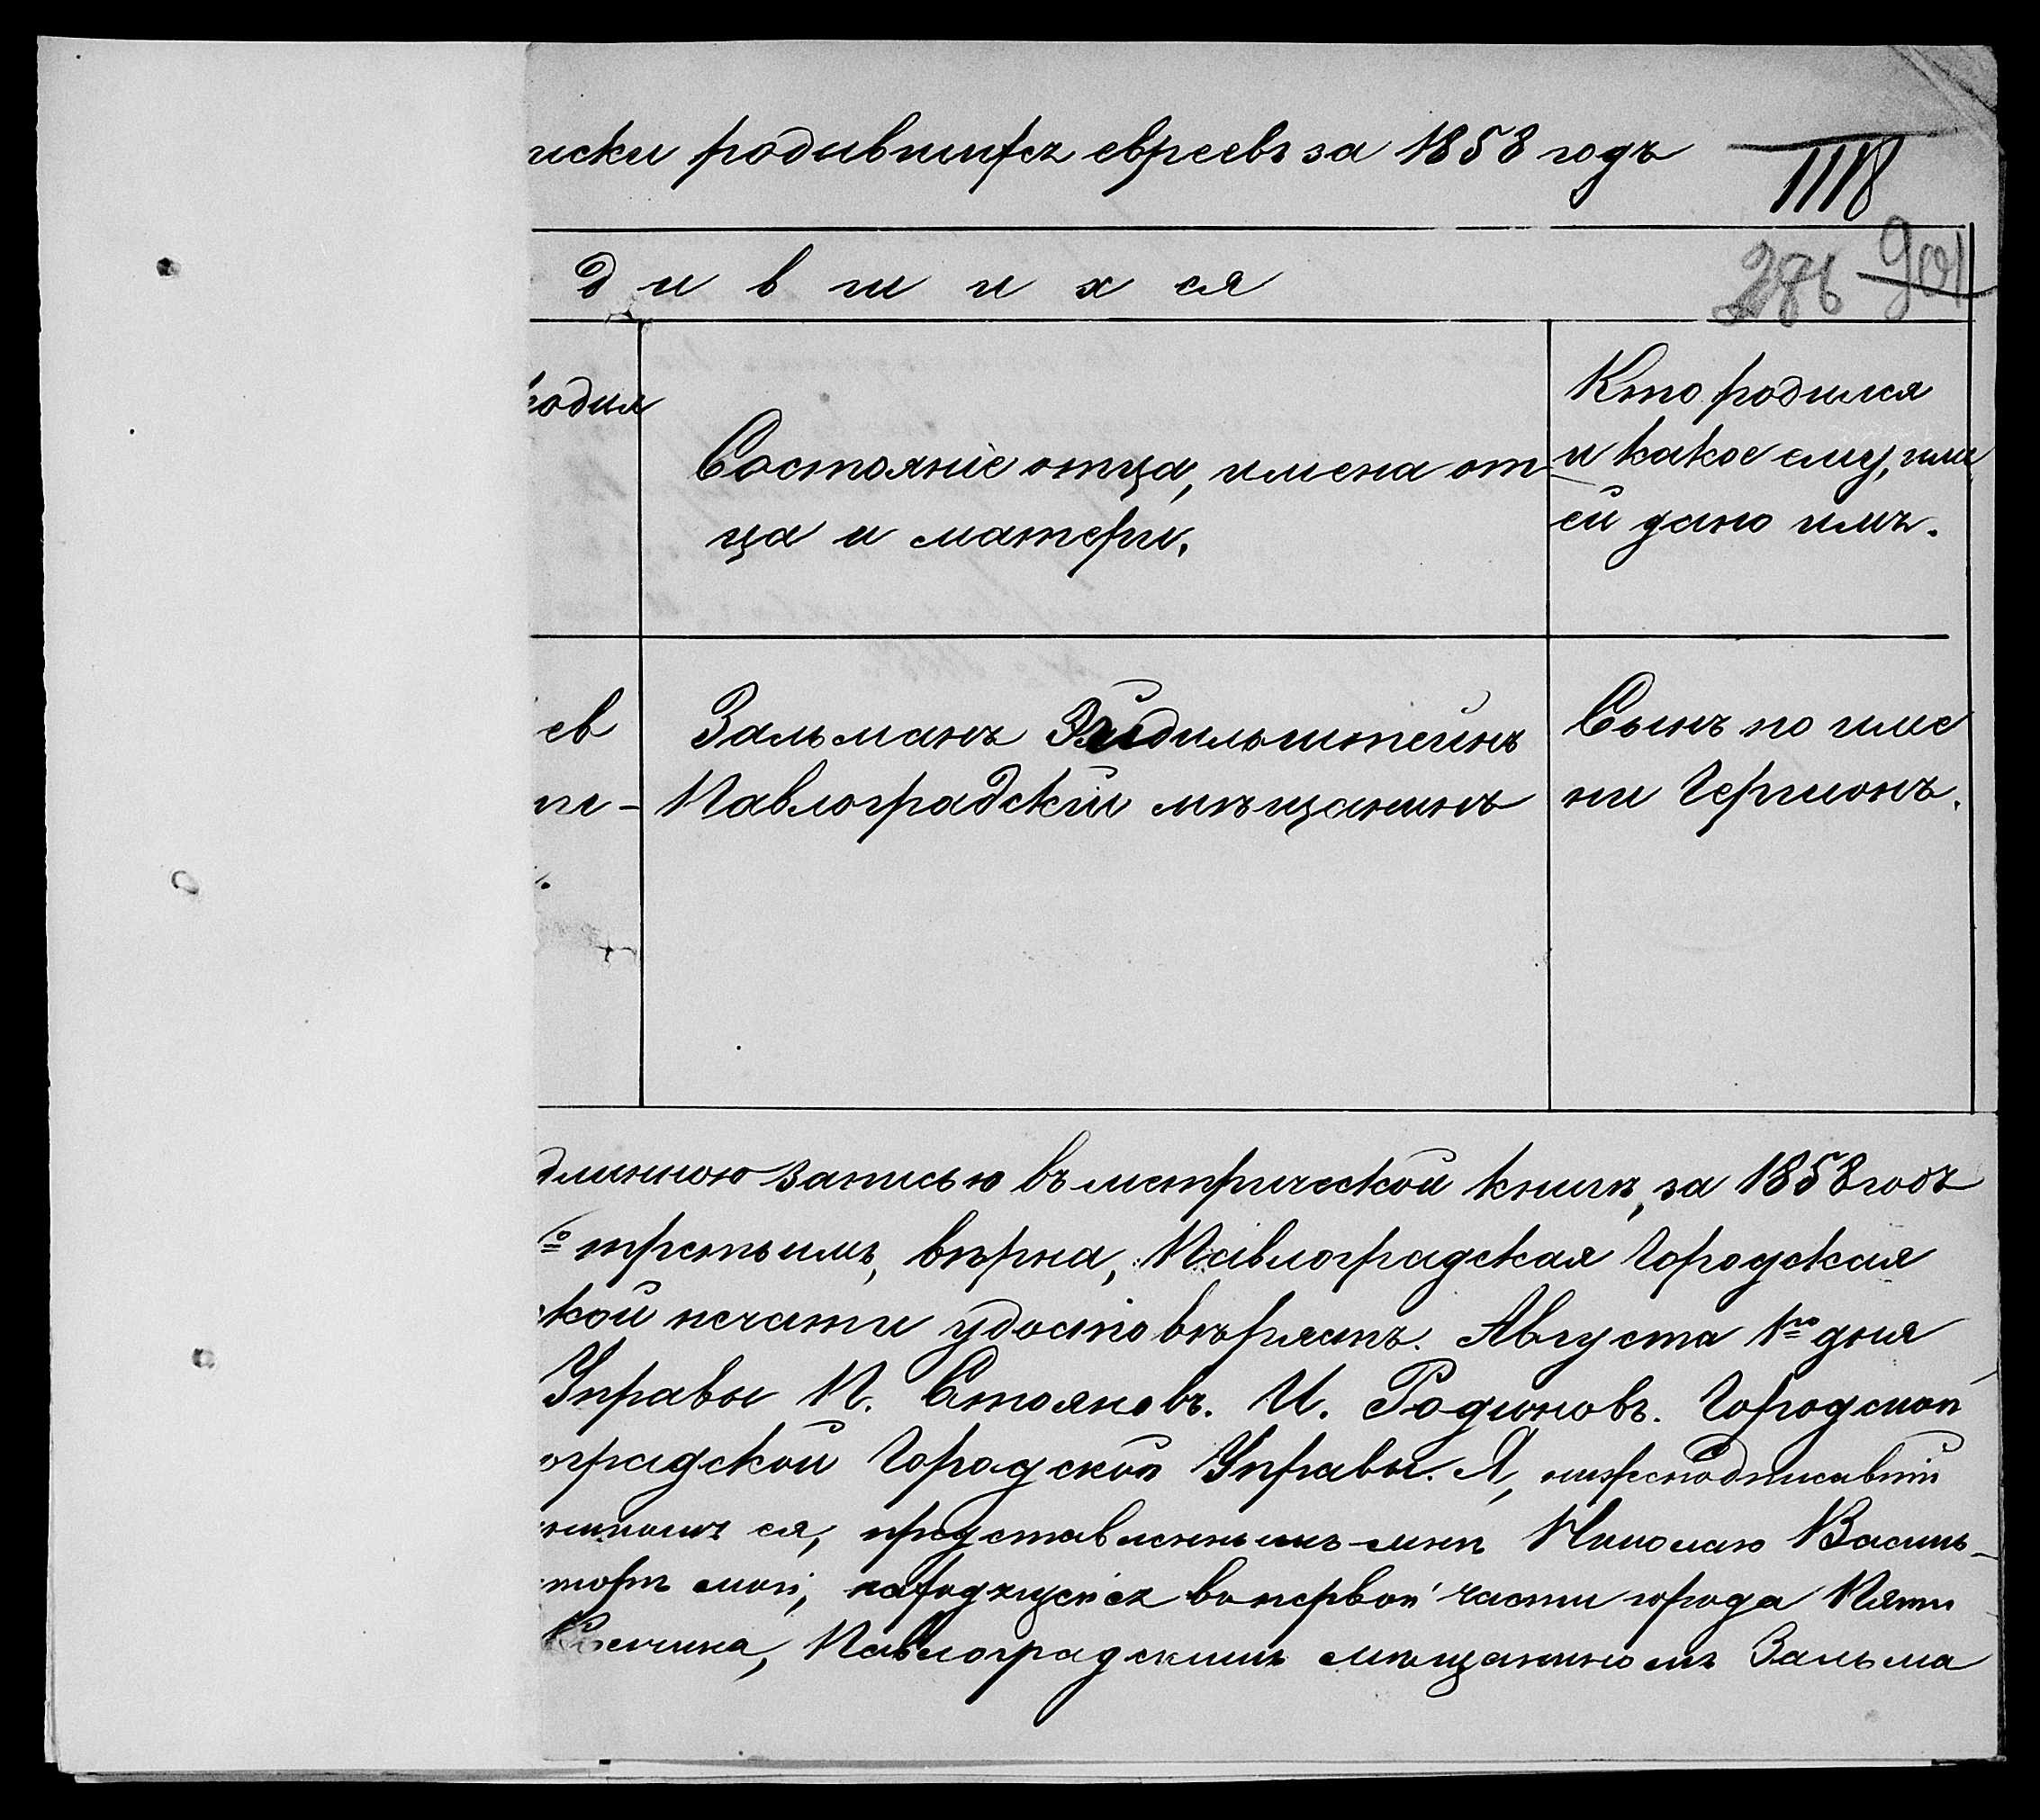 иски родившихся евреевъ за 1858 годъ
1118
286 901
д и в ш и х ся
родил
Состояніе отца, имена от-
ца и матери.
Кто родился
и какое ему, или
ей дано имъ.
ев
Зальманъ Эйдильштейнъ
Павлоградскій мѣщанинъ
Сынъ по име
ни Гершонъ.
длинною записью въ метрической книгѣ, за 1858 годъ
третьимъ, вѣрна, Павлоградская Городская
кой печати удостовѣряетъ. Августа 1го дня
Управы П. Стояновъ. И. Родионовъ. Городской
оградской Городской Управы. Я, нижеподписавшій
ся, представленнымъ мнѣ Николаю Василь-
торѣ моей, находящейся въ первой части города Пяти
Павлоградскимъ мѣщаниномъ Зальма